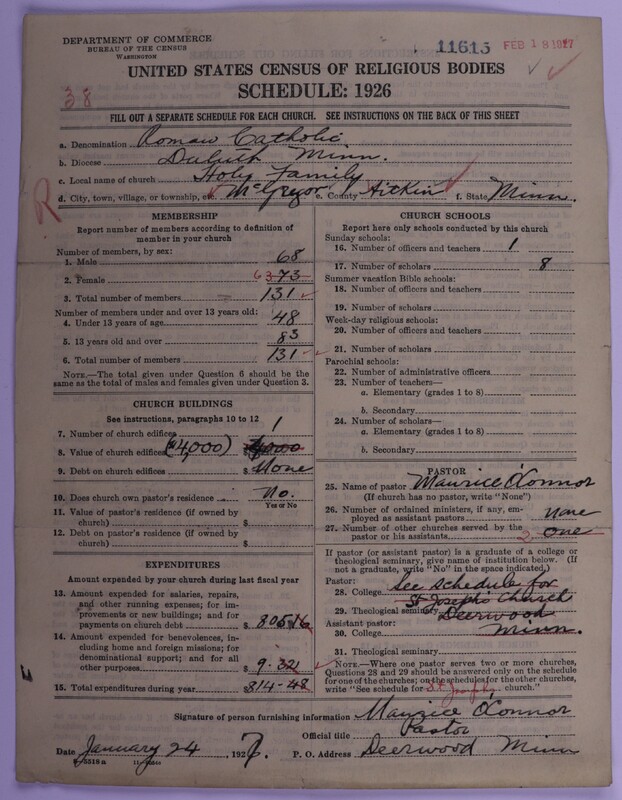 DEPARTMENT OF COMMERCE
BUREAU OF THE CENSUS
WASHINGTON
11615 FEB 18 1927
UNITED STATES CENSUS OF RELIGIOUS BODIES
SCHEDULE: 1926
38
FILL OUT A SEPARATE SCHEDULE FOR EACH CHURCH. SEE INSTRUCTIONS ON THE BACK OF THIS SHEET
a. Denomination Roman Catholic
b. Diocese Duluth Minn.
c. Local name of church Holy Family
d. City, town, village, or township, etc. McGregor e. County Aitkin f. State Minn.
R
MEMBERSHIP
Report number of members according to definition of
member in your church
Number of members, by sex:
1. Male 68
2. Female 63 73
3. Total number of members 131
Number of members under and over 13 years old:
4. Under 13 years of age 48
5. 13 years old and over 83
6. Total number of members 131
NOTE.—The total given under Question 6 should be the
same as the total of males and females given under Question 3.
CHURCH BUILDINGS
See instructions, paragraphs 10 to 12
7. Number of church edifices 1
8. Value of church edifices (4,000) $ 4,000
9. Debt on church edifices $ None
10. Does church own pastor's residence No.
Yes or No
11. Value of pastor's residence (if owned by
church) $
12. Debt on pastor's residence (if owned by
church) $
EXPENDITURES
Amount expended by your church during last fiscal year
13. Amount expended for salaries, repairs,
and other running expenses; for im-
provements or new buildings; and for
payments on church debt $ 805.16
14. Amount expended for benevolences, in-
cluding home and foreign missions; for
denominational support; and for all
other purposes $ 9.32
15. Total expenditures during year $ 814-48
CHURCH SCHOOLS
Report here only schools conducted by this church
Sunday schools:
16. Number of officers and teachers 1
17. Number of scholars 8
Summer vacation Bible schools:
18. Number of officers and teachers
19. Number of scholars
Week-day religious schools:
20. Number of officers and teachers
21. Number of scholars
Parochial schools:
22. Number of administrative officers
23. Number of teachers—
a. Elementary (grades 1 to 8)
b. Secondary
24. Number of scholars—
a. Elementary (grades 1 to 8)
b. Secondary
PASTOR
25. Name of pastor Maurice O'Connor
(If church has no pastor, write "None")
26. Number of ordained ministers, if any, em-
ployed as assistant pastors None
27. Number of other churches served by the
pastor or his assistants 2 one
If pastor (or assistant pastor) is a graduate of a college or
theological seminary, give name of institution below. (If
not a graduate, write "No" in the space indicated.)
Pastor: See schedule for
28. College St Joseph's Church
29. Theological seminary Deerwood
Assistant pastor: Minn.
30. College
31. Theological seminary
NOTE.—Where one pastor serves two or more churches,
Questions 28 and 29 should be answered only on the schedule
for one of the churches; on the schedules for the other churches,
write "See schedule for St Joseph's church."
Signature of person furnishing information Maurice O'Connor
Official title Pastor
Date January 24, 1927. P. O. Address Deerwood Minn